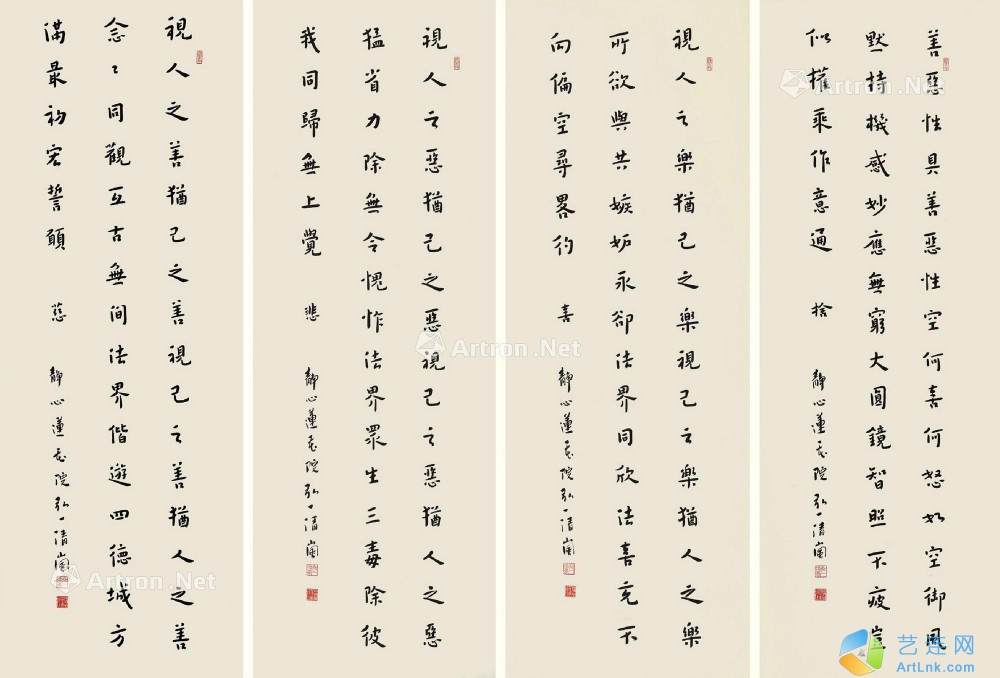 視人之善猶己之善視己之善猶人之善
念〻同觀亙古無间法界偕遊四德城方
滿最初宏誓願 慈 靜心蓮花院弘一清
視人之惡猶己之惡視己之惡猶人之惡
猛省力除無令愧怍法界眾生三毒除彼
我同歸無上覺 悲 靜心蓮花院弘一清
視人之樂猶己之樂視己之樂猶人之樂
所欲與共嫉妒永卻法界同欣法喜充不
向偏空尋畧彴 喜 靜心蓮花院弘一清
善惡性具善惡性空何喜何怒如空御風
默持機感妙應無窮大圓鏡智照不疲豈
似權乘作意通 捨 靜心蓮花院弘一清
Artron.Net
Artron.Net
Artron.Net
Artron.Net
艺连网
ArtLnk.com